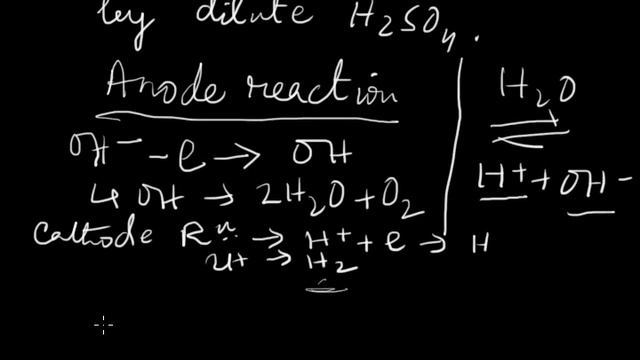 by dilute H₂SO₄.
Anode reaction
OH⁻ - e → OH
4 OH → 2H₂O + O₂
Cathode Rⁿ → H⁺ + e → H
2H → H₂
H₂O
⇌
H⁺ + OH⁻